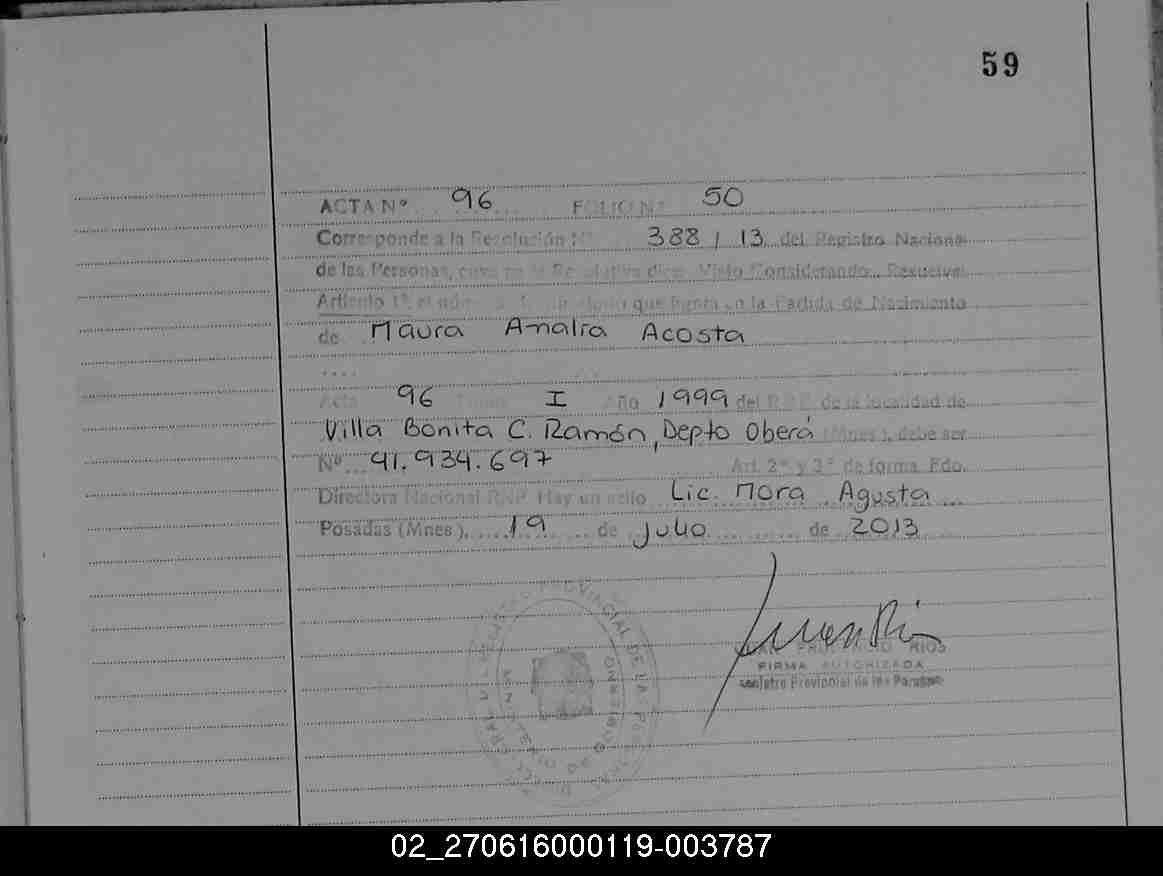 59
ACTA Nº 96 FOLIO Nº 50
Corresponde a la Resolución Nº 388 / 13 del Registro Nacional
de las Personas, cuya parte Resolutiva dice: Visto Considerando.. Resuelve:
Artículo 1º. el número de que figura en la Partida de Nacimiento
de Maura Analia Acosta
Acta 96 Tomo I Año 1999 del R.P.P. de la localidad de
Villa Bonita C. Ramón, Depto Oberá (Mnes.), debe ser
Nº 41.934.697 Art. 2º y 3º de forma. Fdo.
Directora Nacional RNP. Hay un sello Lic. Mora Agusta
Posadas (Mnes.), 19 de julio de 2013
RIOS
FIRMA AUTORIZADA
Registro Provincial de las Personas
02_270616000119-003787